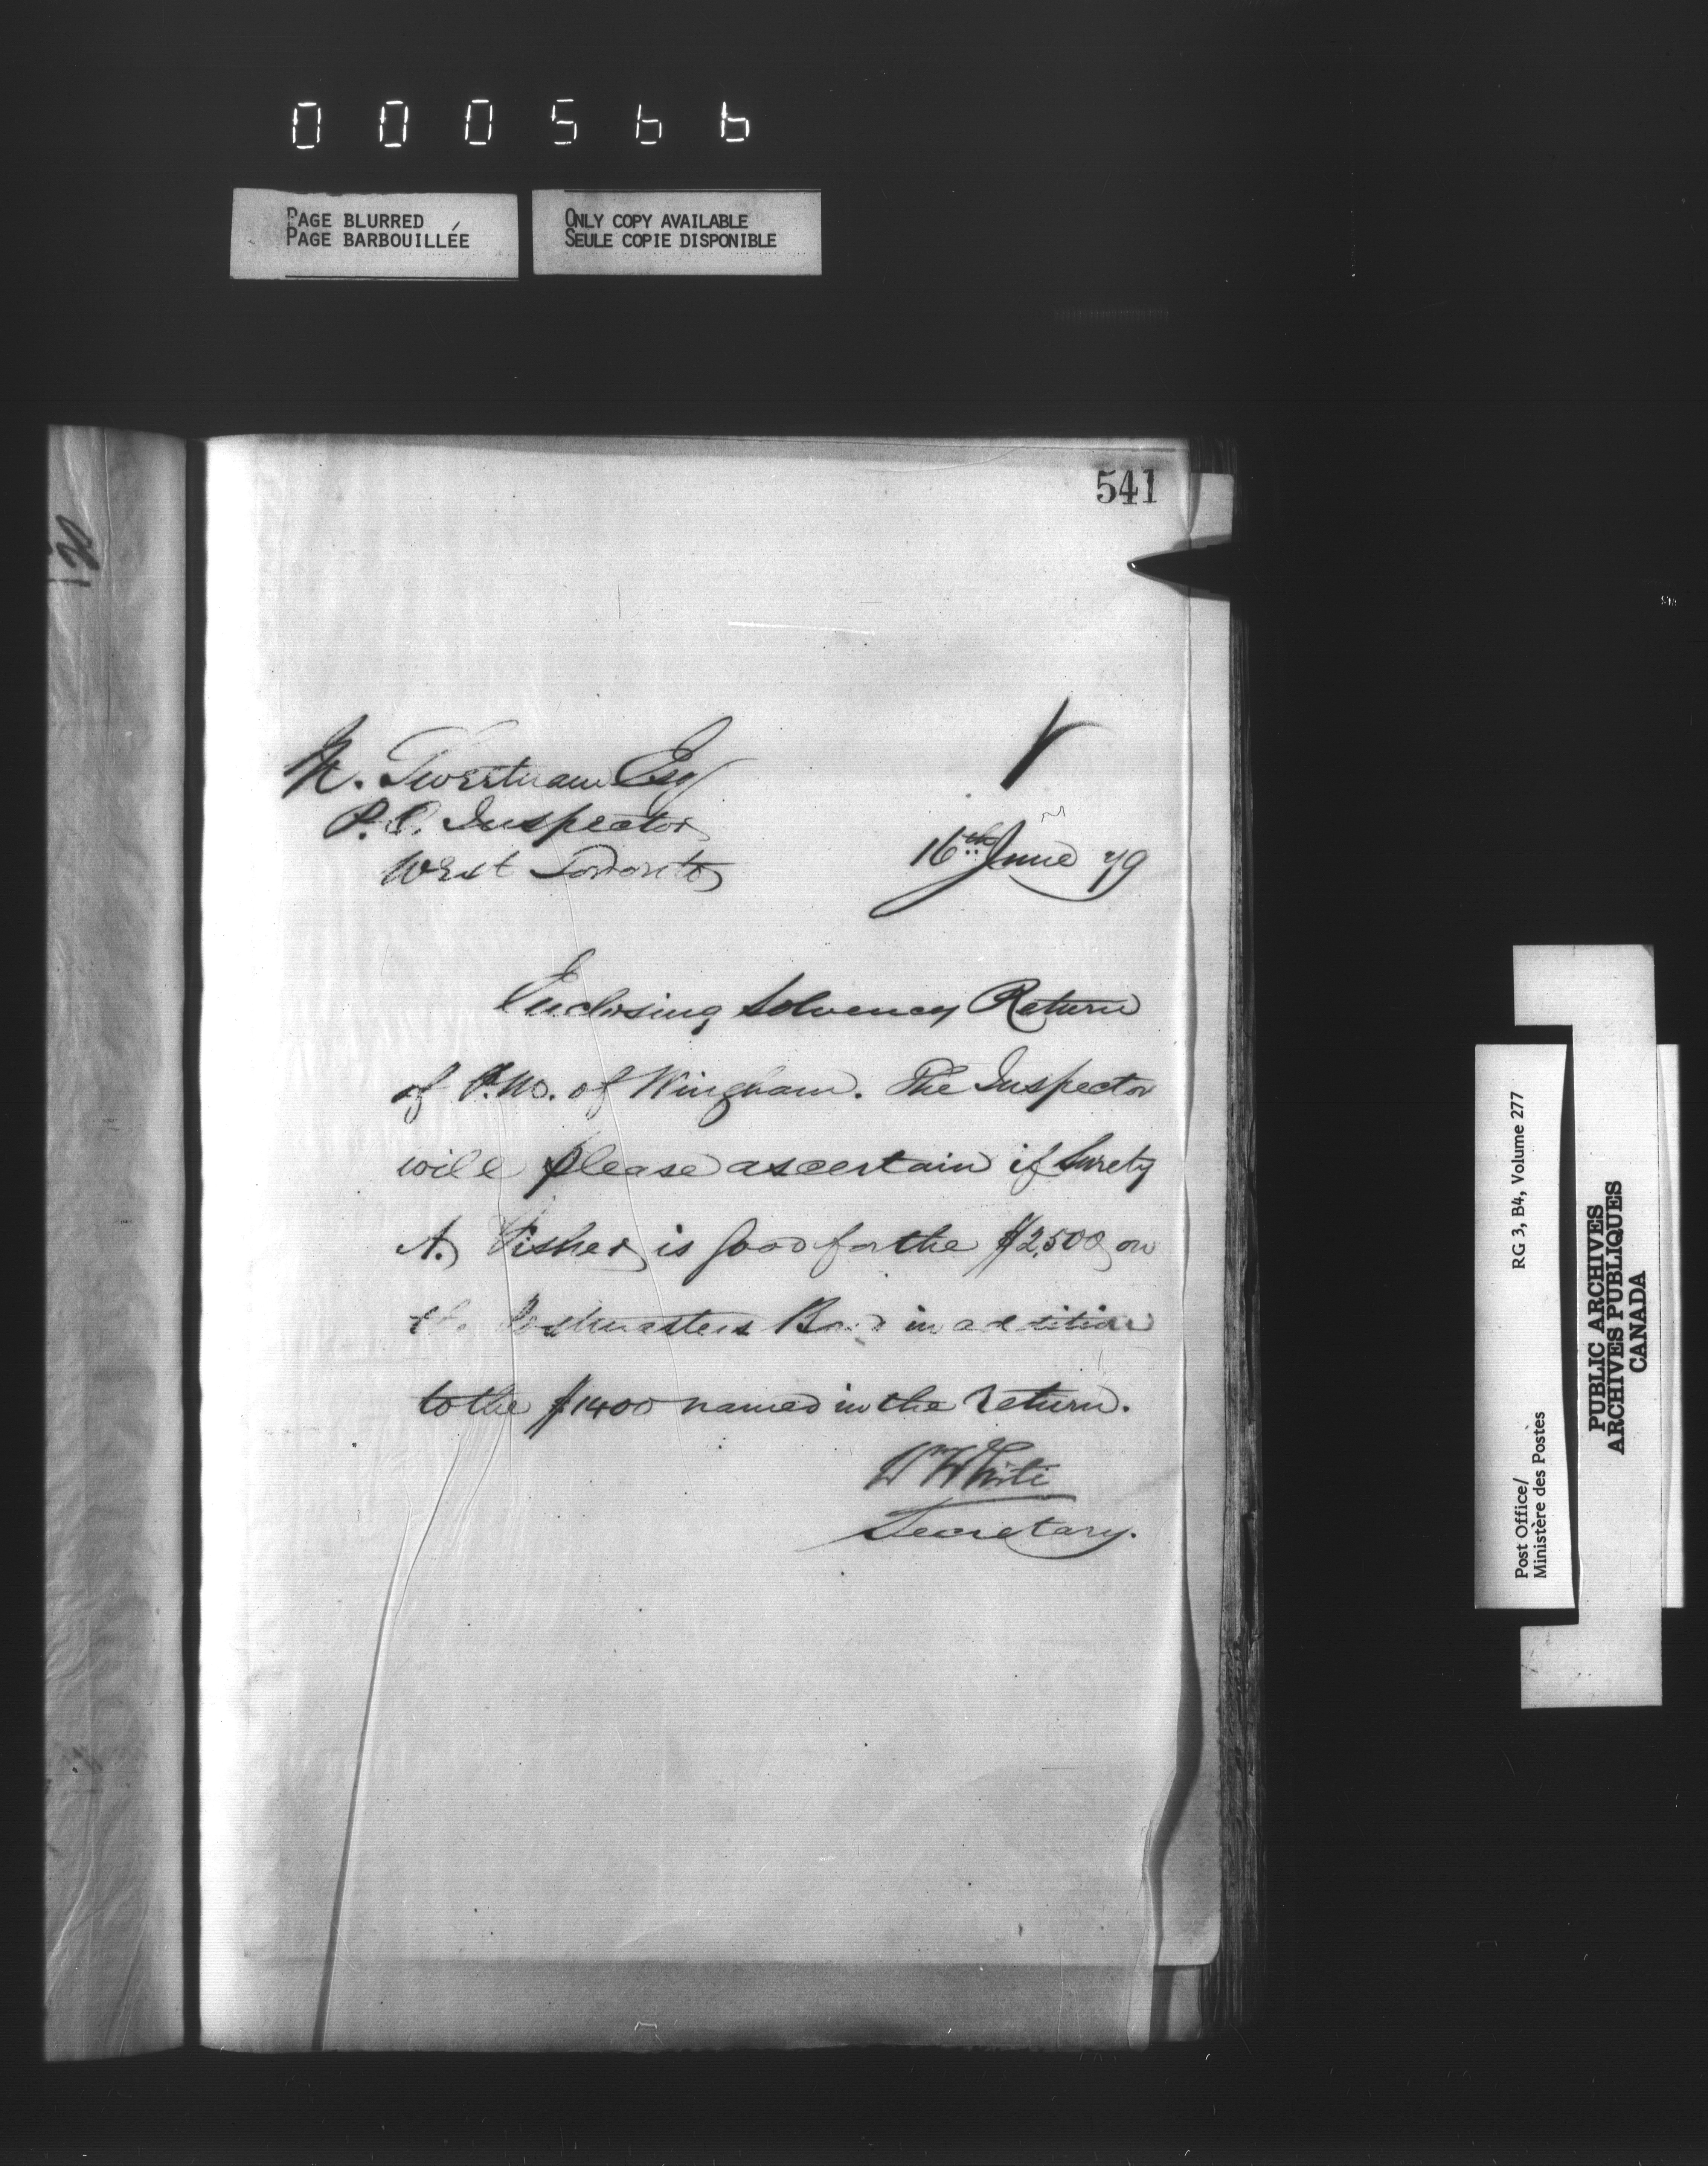 000566
PAGE BLURRED
PAGE BARBOUILLÉE
ONLY COPY AVAILABLE
SEULE COPIE DISPONIBLE
541
M. Sweetnam Esq
P.O. Inspector
West Toronto
16th June 79
Enclosing Solvency Return
of P.M. of Wingham. The Inspector
will please ascertain if Surety
A. Fisher is good for the $2,500 on
the Postmasters Bond in addition
to the $1400 named in the return.
W White
Secretary.
Post Office/
Ministère des Postes
RG 3, B4, Volume 277
PUBLIC ARCHIVES
ARCHIVES PUBLIQUES
CANADA